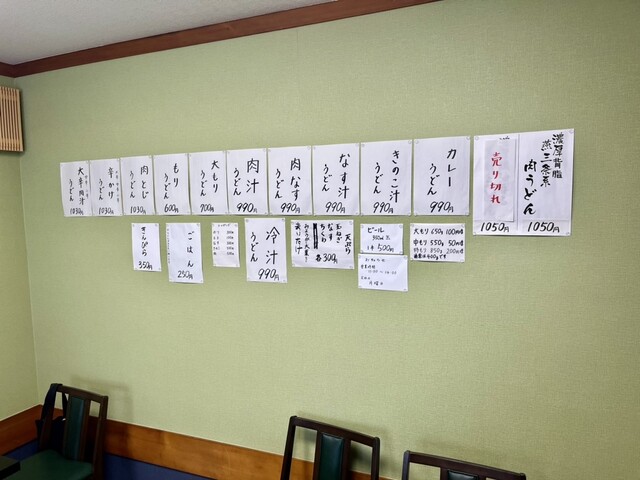 濃厚背脂
燕三条系
肉うどん
1050円
売り切れ
1050円
カレー
うどん
990円
きのこ汁
うどん
990円
なす汁
うどん
990円
肉なす
うどん
990円
肉汁
うどん
990円
大もり
うどん
700円
もり
うどん
600円
肉とじ
うどん
1030円
辛かり
うどん
1030円
うどん
1030円
大もり 650g 100円増
中もり 550g 50円増
特もり 850g 200円増
普通は400gです
ビール
1本 500円
営業時間
月曜日
天ぷら
玉ねぎ
なす
ちくわ
まいたけ
各300円
冷汁
うどん
990円
ごはん
250円
きんぴら
350円